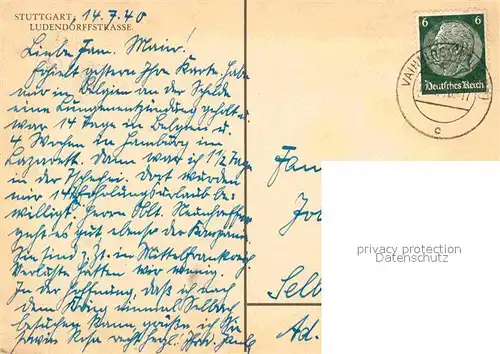 STUTTGART, 14.7.40
LUDENDORFFSTRASSE.
Liebe Fam. Maier!
Erhielt gestern Ihre Karte. Habe
mir in Belgien an der Schelde
eine Lungenentzündung geholt u.
war 14 Tage in Belgien u.
4 Wochen in Hamburg im
Lazarett. Dann war ich 1 1/2 Tage
in der Tschechei. Dort wurden
mir 14 Erholungsurlaub be-
willigt. Herrn Oblt.
geht es gut ebenso der Kompanie.
Sie sind z. Zt. in Mittelfrankreich
Verluste hatten wir wenig.
In der Hoffnung, daß ich nach
dem Krieg einmal Selbach
besuchen kann grüße ich Sie
sowie recht herzl.
6 6
Deutsches Reich
VAIHINGEN
c
Fam
Selb
Ad.
privacy protection
Datenschutz